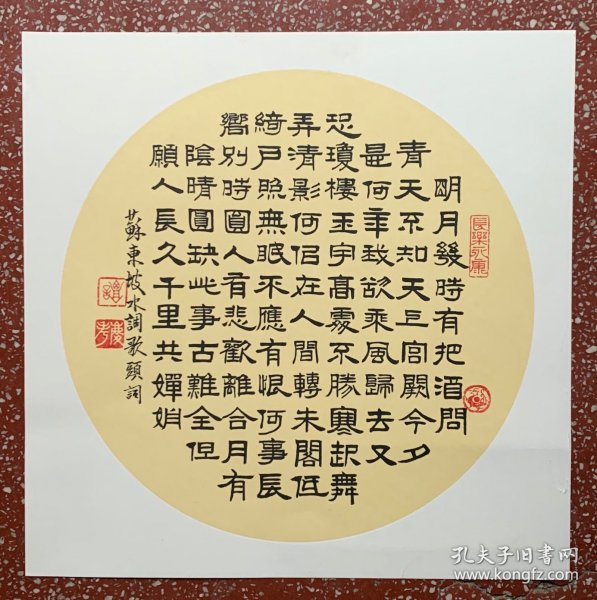 明月幾時有把酒問
青天不知天上宮闕今夕
是何年我欲乘風歸去又
恐瓊樓玉宇高處不勝寒起舞
弄清影何佀在人間轉朱閣低
綺戶照無眠不應有恨何事長
嚮別時圓人有悲歡離合月有
陰晴圓缺此事古難全但
願人長久千里共嬋娟
蘇東坡水調歌頭詞
長樂永康
孔夫子旧书网
www.kongfz.com